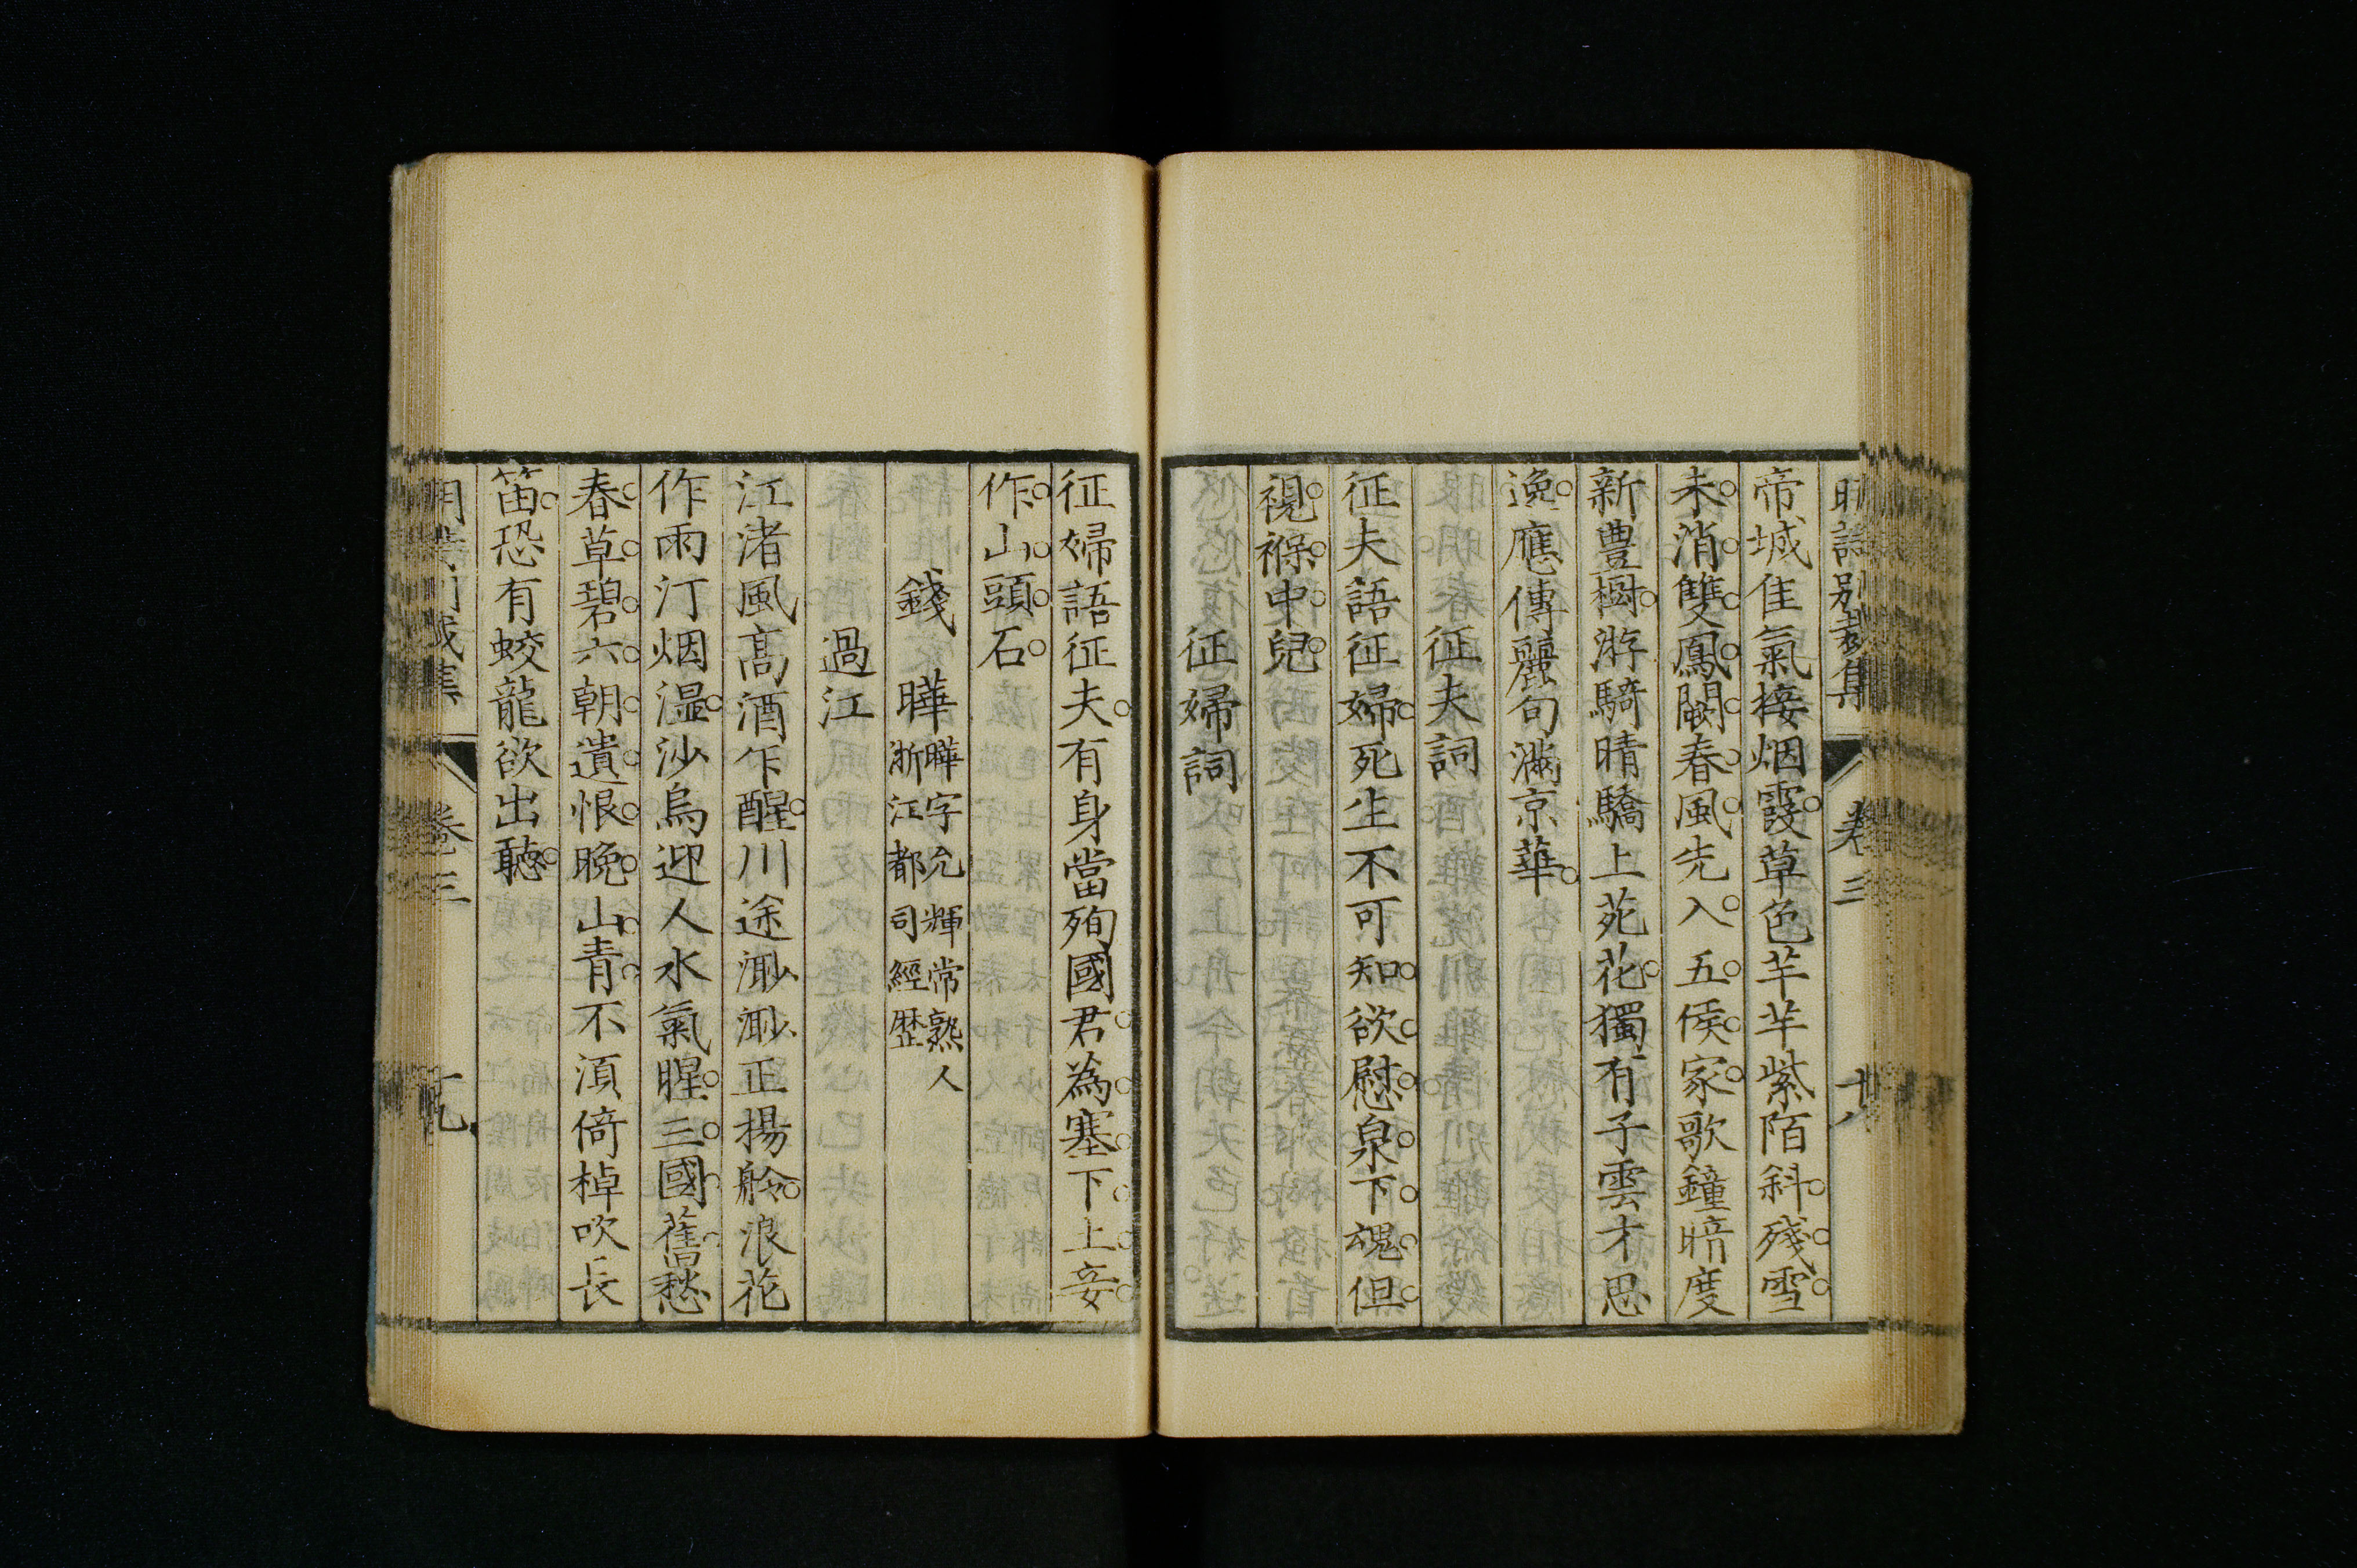 明詩別裁集 卷三 十八
帝城佳氣接烟霞草色芊芊紫陌斜殘雪
未消雙鳳闕春風先入五侯家歌鐘暗度
新豐樹游騎晴驕上苑花獨有子雲才思
逸應傳麗句滿京華
征夫詞
征夫語征婦死生不可知欲慰泉下魂但
視褓中兒
征婦詞
征婦語征夫有身當殉國君為塞下土妾
作山頭石
錢 曄 曄字允輝常熟人
浙江都司經歴
過江
江渚風高酒乍醒川途渺渺正揚舲浪花
作雨汀烟濕沙鳥迎人水氣腥三國舊愁
春草碧六朝遺恨晚山青不須倚棹吹長
笛恐有蛟龍欲出聽
卷三